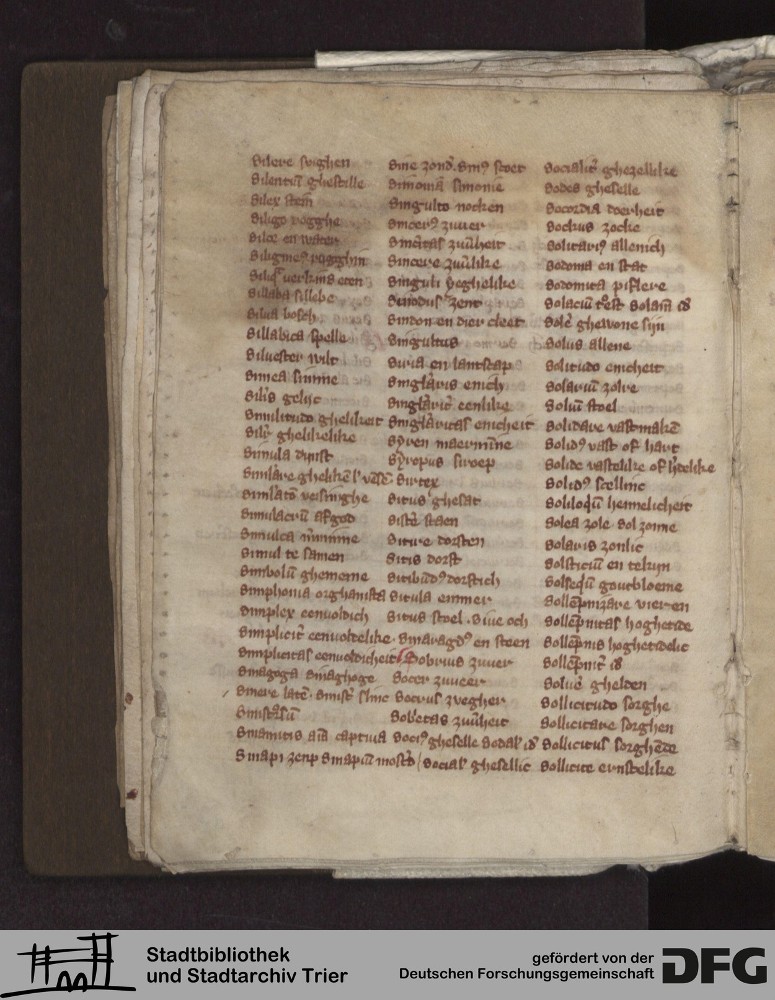 Silere swighen
Silentiū ghestille
Silex stein
Siligo rogghe
Silce en water
Siligineꝰ rogghin
Siliqͣ verkins eten
Sillaba sillebe
Silua bosch
Sillabica spelle
Siluester wilt
Simea simme
Silis gelijc
Similitudo ghelikeit
Silr̄ ghelikelike
Simula dinst
Similare ghelikē
Simlatō veisinghe
Simulacrū afgod
Simul te samen
Simbolū ghemeine
Simphonia orghanista
Simplex eenuoldich
Simplicit̄ eenuoldelike
Simplicitas eenuoldicheit
Sinagoga sinaghoge
Sinere latē
Sinapi zenp Sinapiū mostd̄
Sine zond̄. Sinꝰ scoet
Simonia simonie
Singulto nocken
Sincerꝰ zuuer
Sinc̄itas zuūheit
Sincere zuūlike
Singuli yeghelike
Sinodus zent
Sindon en dier cleet
Singultus
Siria en lantscap
Singlāris enich
Singlārit̄ eenlike
Singlāritas enicheit
Syren maerminne
Syropus siroep
Sirtex
Situs ghesat
Sistē staen
Sitire dorsten
Sitis dorst
Sitibūdꝰ dorstich
Situla emmer
Situs stoel . Siue och
Smaragdꝰ en steen
Sobrius zuuer
Socer zweer
Socrus zwegher
Sobietas zuūheit
Sociꝰ gheselle Sodal' id'
Social' ghesellic
Socialit̄ ghezellike
Sodes gheselle
Socordia doerheit
Soccus zocke
Solitariꝰ allenich
Sodoma en stat
Sodomita
Solaciū tͦest Solam̄ id'
Solē ghewone sijn
Solus allene
Solitudo enicheit
Solariū zolre
Soliū stoel
Solidare vastmakē
Solidꝰ vast of hart
Solide vastelike of
Solidꝰ scellinc
Soliloqūu heimelicheit
Solea zole . Sol zonne
Solaris zonlic
Solsticiū en teikijn
Solseqūu goutbloeme
Sollēpnizare vieren
Sollēpnitas hoghetide
Sollēpnis hoghetidelic
Sollēpnit̄ id'
Soluē ghelden
Sollicitudo sorghe
Sollicitare sorghen
Sollicitus sorghēde
Sollicite ernstelike
Stadtbibliothek
und Stadtarchiv Trier
gefördert von der
Deutschen Forschungsgemeinschaft
DFG